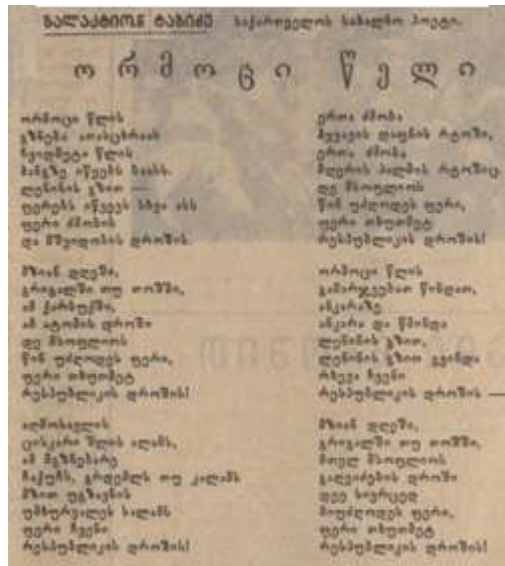 გალაკტიონ ტაბიძე საქართველოს სახალხო პოეტი.
ორმოცი წელი
ორმოცი წლის
გზნება ათასცხრაას
ჩვიდმეტი წლის
ჰანგზე იწვებს ხაასს.
ლენინის გზით —
ფერებს იწვევს სხვა ასს
ფერი ძმობის
და მშვიდობის დროშის.
მზიან დღეში,
გრიგალში თუ თოშში,
ამ ქარბუქში,
ამ ატომის დროში
დე მსოფლიოს
წინ უძღოდეს ფერი,
ფერი თხუთმეტ
რესპუბლიკის დროშის!
აღმოსავლის
ცისკარი შლის ალამს,
ამ მგზნებარე
ჩაქუჩს, გრდემლს თუ კალამს
მზით უგზავნის
უმხურვალეს სალამს
ფერი ჩვენი
რესპუბლიკის დროშის!
ერთი ძმობა
ჰყვავის დაფნის რტოში,
ერთი ძმობა
მღერის პალმის რტოშიც.
დე მსოფლიოს
წინ უძღოდეს ფერი,
ფერი თხუთმეტ
რესპუბლიკის დროშის!
ორმოცი წლის
გამარჯვებით წინდათ,
ანკარაზე
ანკარა და წმინდა
ლენინის გზით,
ლენინის გზით გვინდა
რხევა ჩვენი
რესპუბლიკის დროშის —
მზიან დღეში,
გრიგალში თუ თოშში,
მთელ მსოფლიოს
გაღვიძების დროში
დეე სივრცედ
მიუძღოდეს ფერი,
ფერი თხუთმეტ
რესპუბლიკის დროშის!